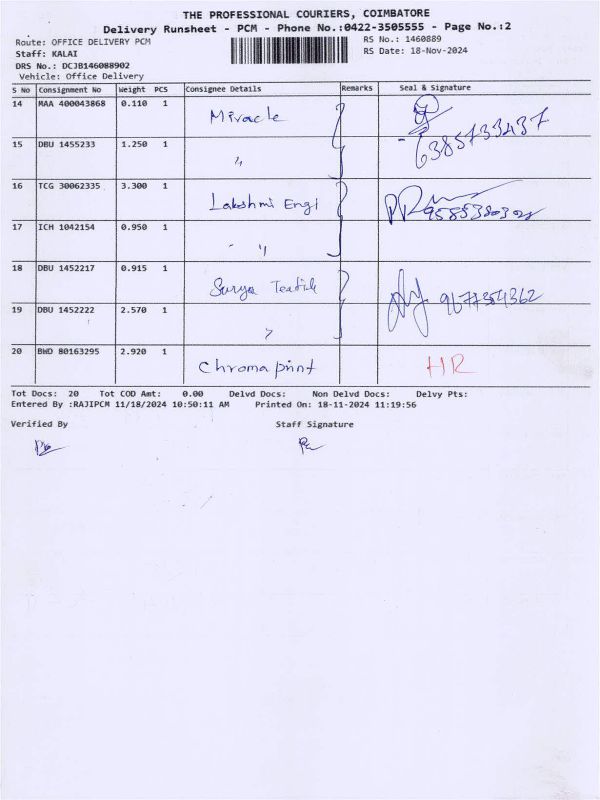 THE PROFESSIONAL COURIERS, COIMBATORE
Delivery Runsheet - PCM - Phone No.:0422-3505555 - Page No.:2
Route: OFFICE DELIVERY PCM
RS No.: 1460889
Staff: KALAI
RS Date: 18-Nov-2024
DRS No.: DCJB146088902
Vehicle: Office Delivery
S No Consignment No Weight PCS Consignee Details Remarks Seal & Signature
14 MAA 400043868 0.110 1 Miracle
15 DBU 1455233 1.250 1 〃 6385733437
16 TCG 30062335 3.300 1 Lakshmi Engi
17 ICH 1042154 0.950 1 〃
18 DBU 1452217 0.915 1 Surya Textile 9677354362
19 DBU 1452222 2.570 1 〃
20 BWD 80163295 2.920 1 Chroma print HR
Tot Docs: 20 Tot COD Amt: 0.00 Delvd Docs: Non Delvd Docs: Delvy Pts:
Entered By :RAJIPCM 11/18/2024 10:50:11 AM Printed On: 18-11-2024 11:19:56
Verified By Staff Signature